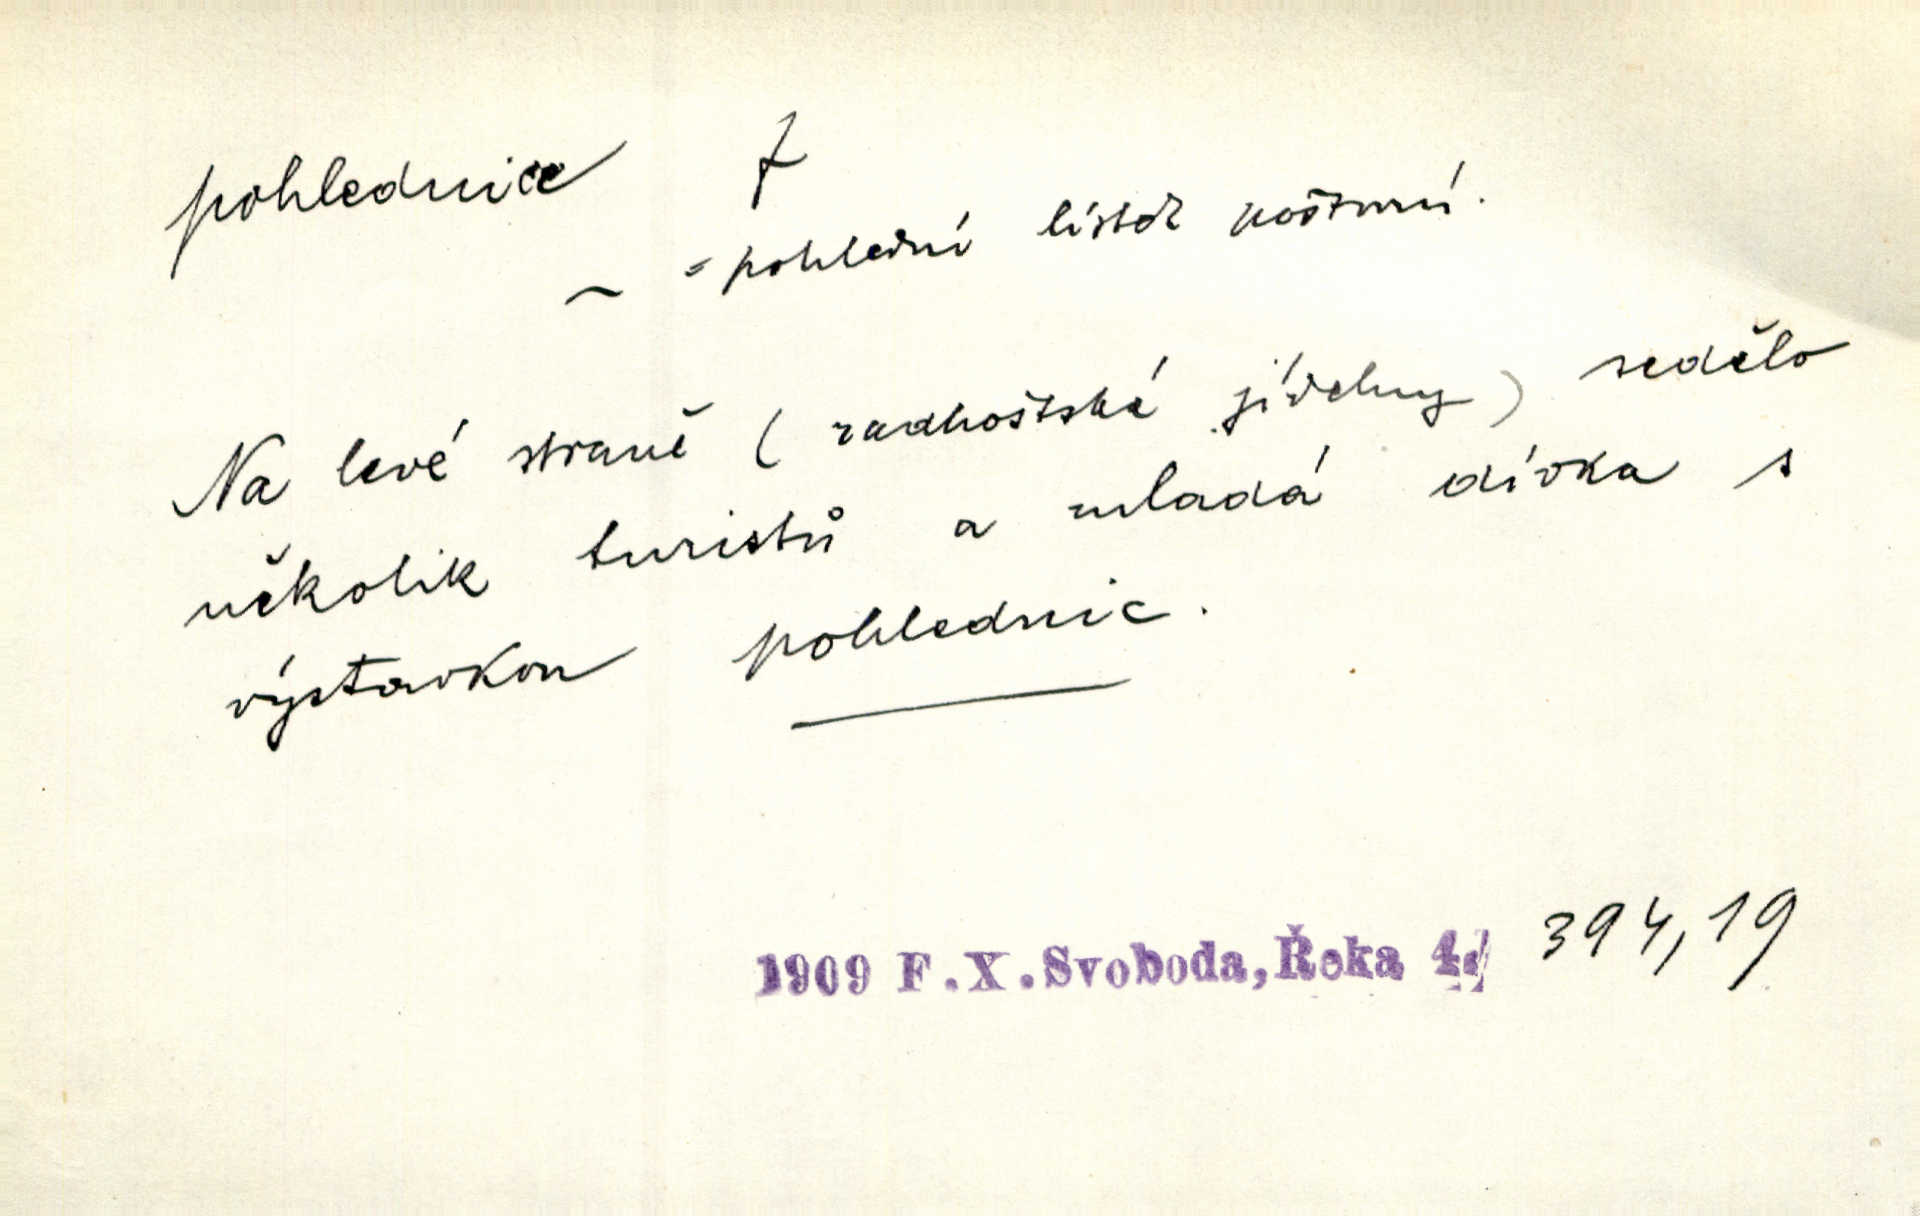 pohlednice f
~ = pohlední lístek poštovní.
Na levé straně (radhošťské jídelny) sedělo
několik turistů a mladá dívka s
výstavkou pohlednic.
1909 F.X.Svoboda, Řeka 4. 394,19